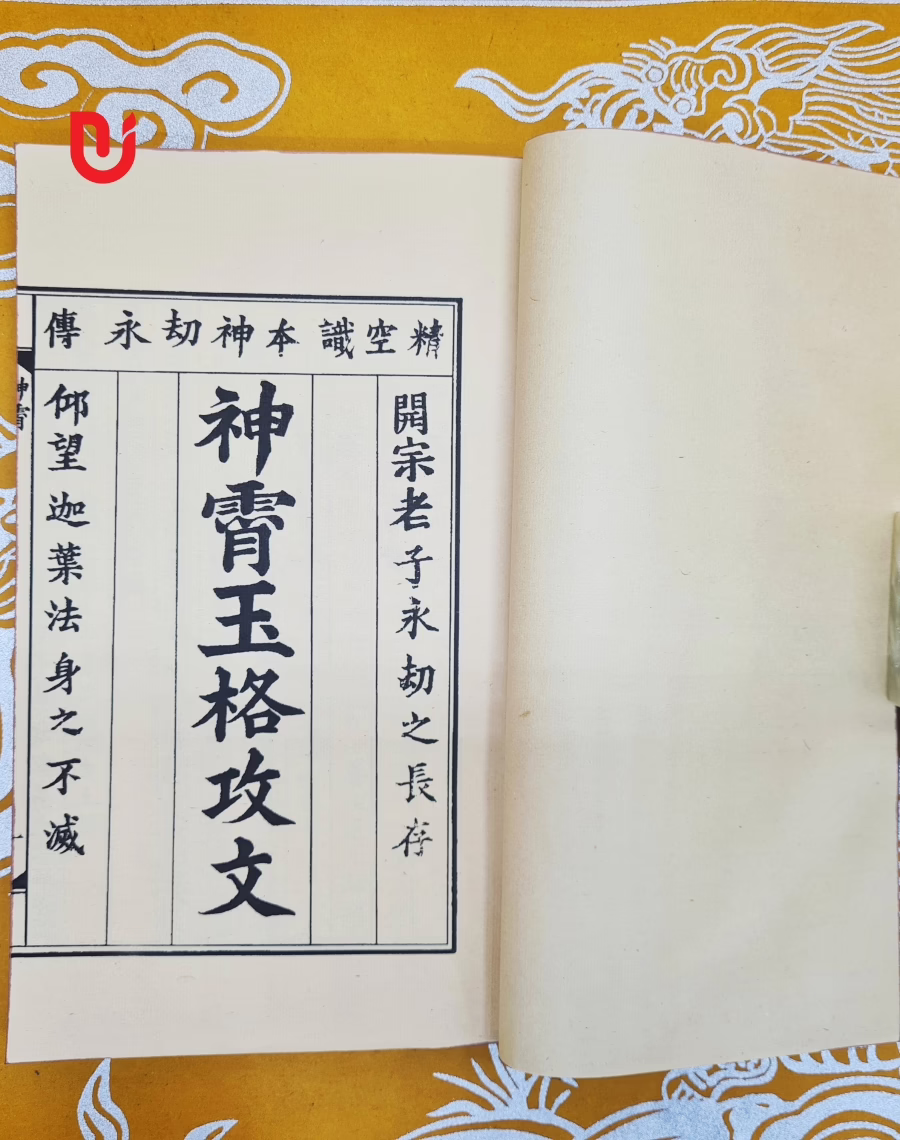 精空識本神劫永傳
開宗老子永劫之長存
神霄玉格攻文
仰望迦葉法身之不滅
神霄